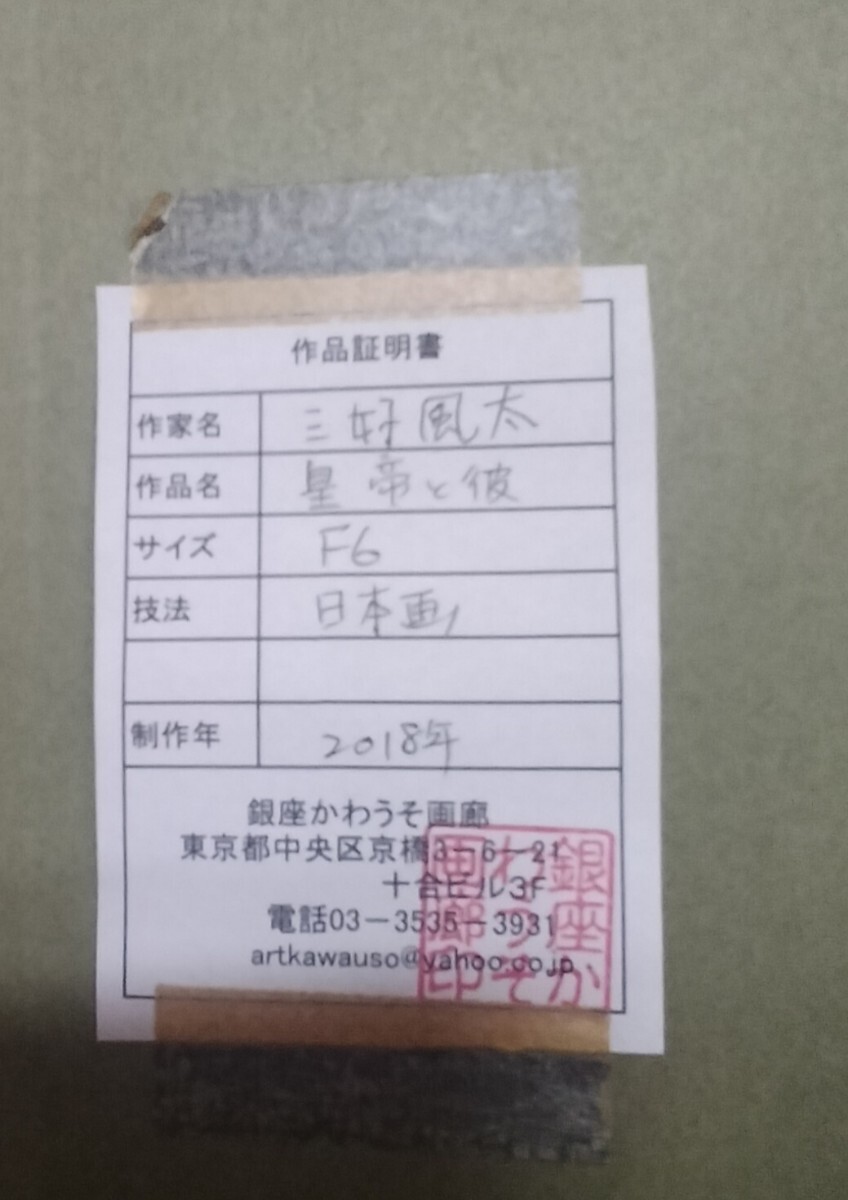 作品証明書
作家名 三好風太
作品名 皇帝と彼
サイズ F6
技法 日本画
制作年 2018年
銀座かわうそ画廊
東京都中央区京橋3－6－21
十合ビル3F
電話03－3535－3931
artkawauso@yahoo.co.jp
銀座か
わうそ
画廊印